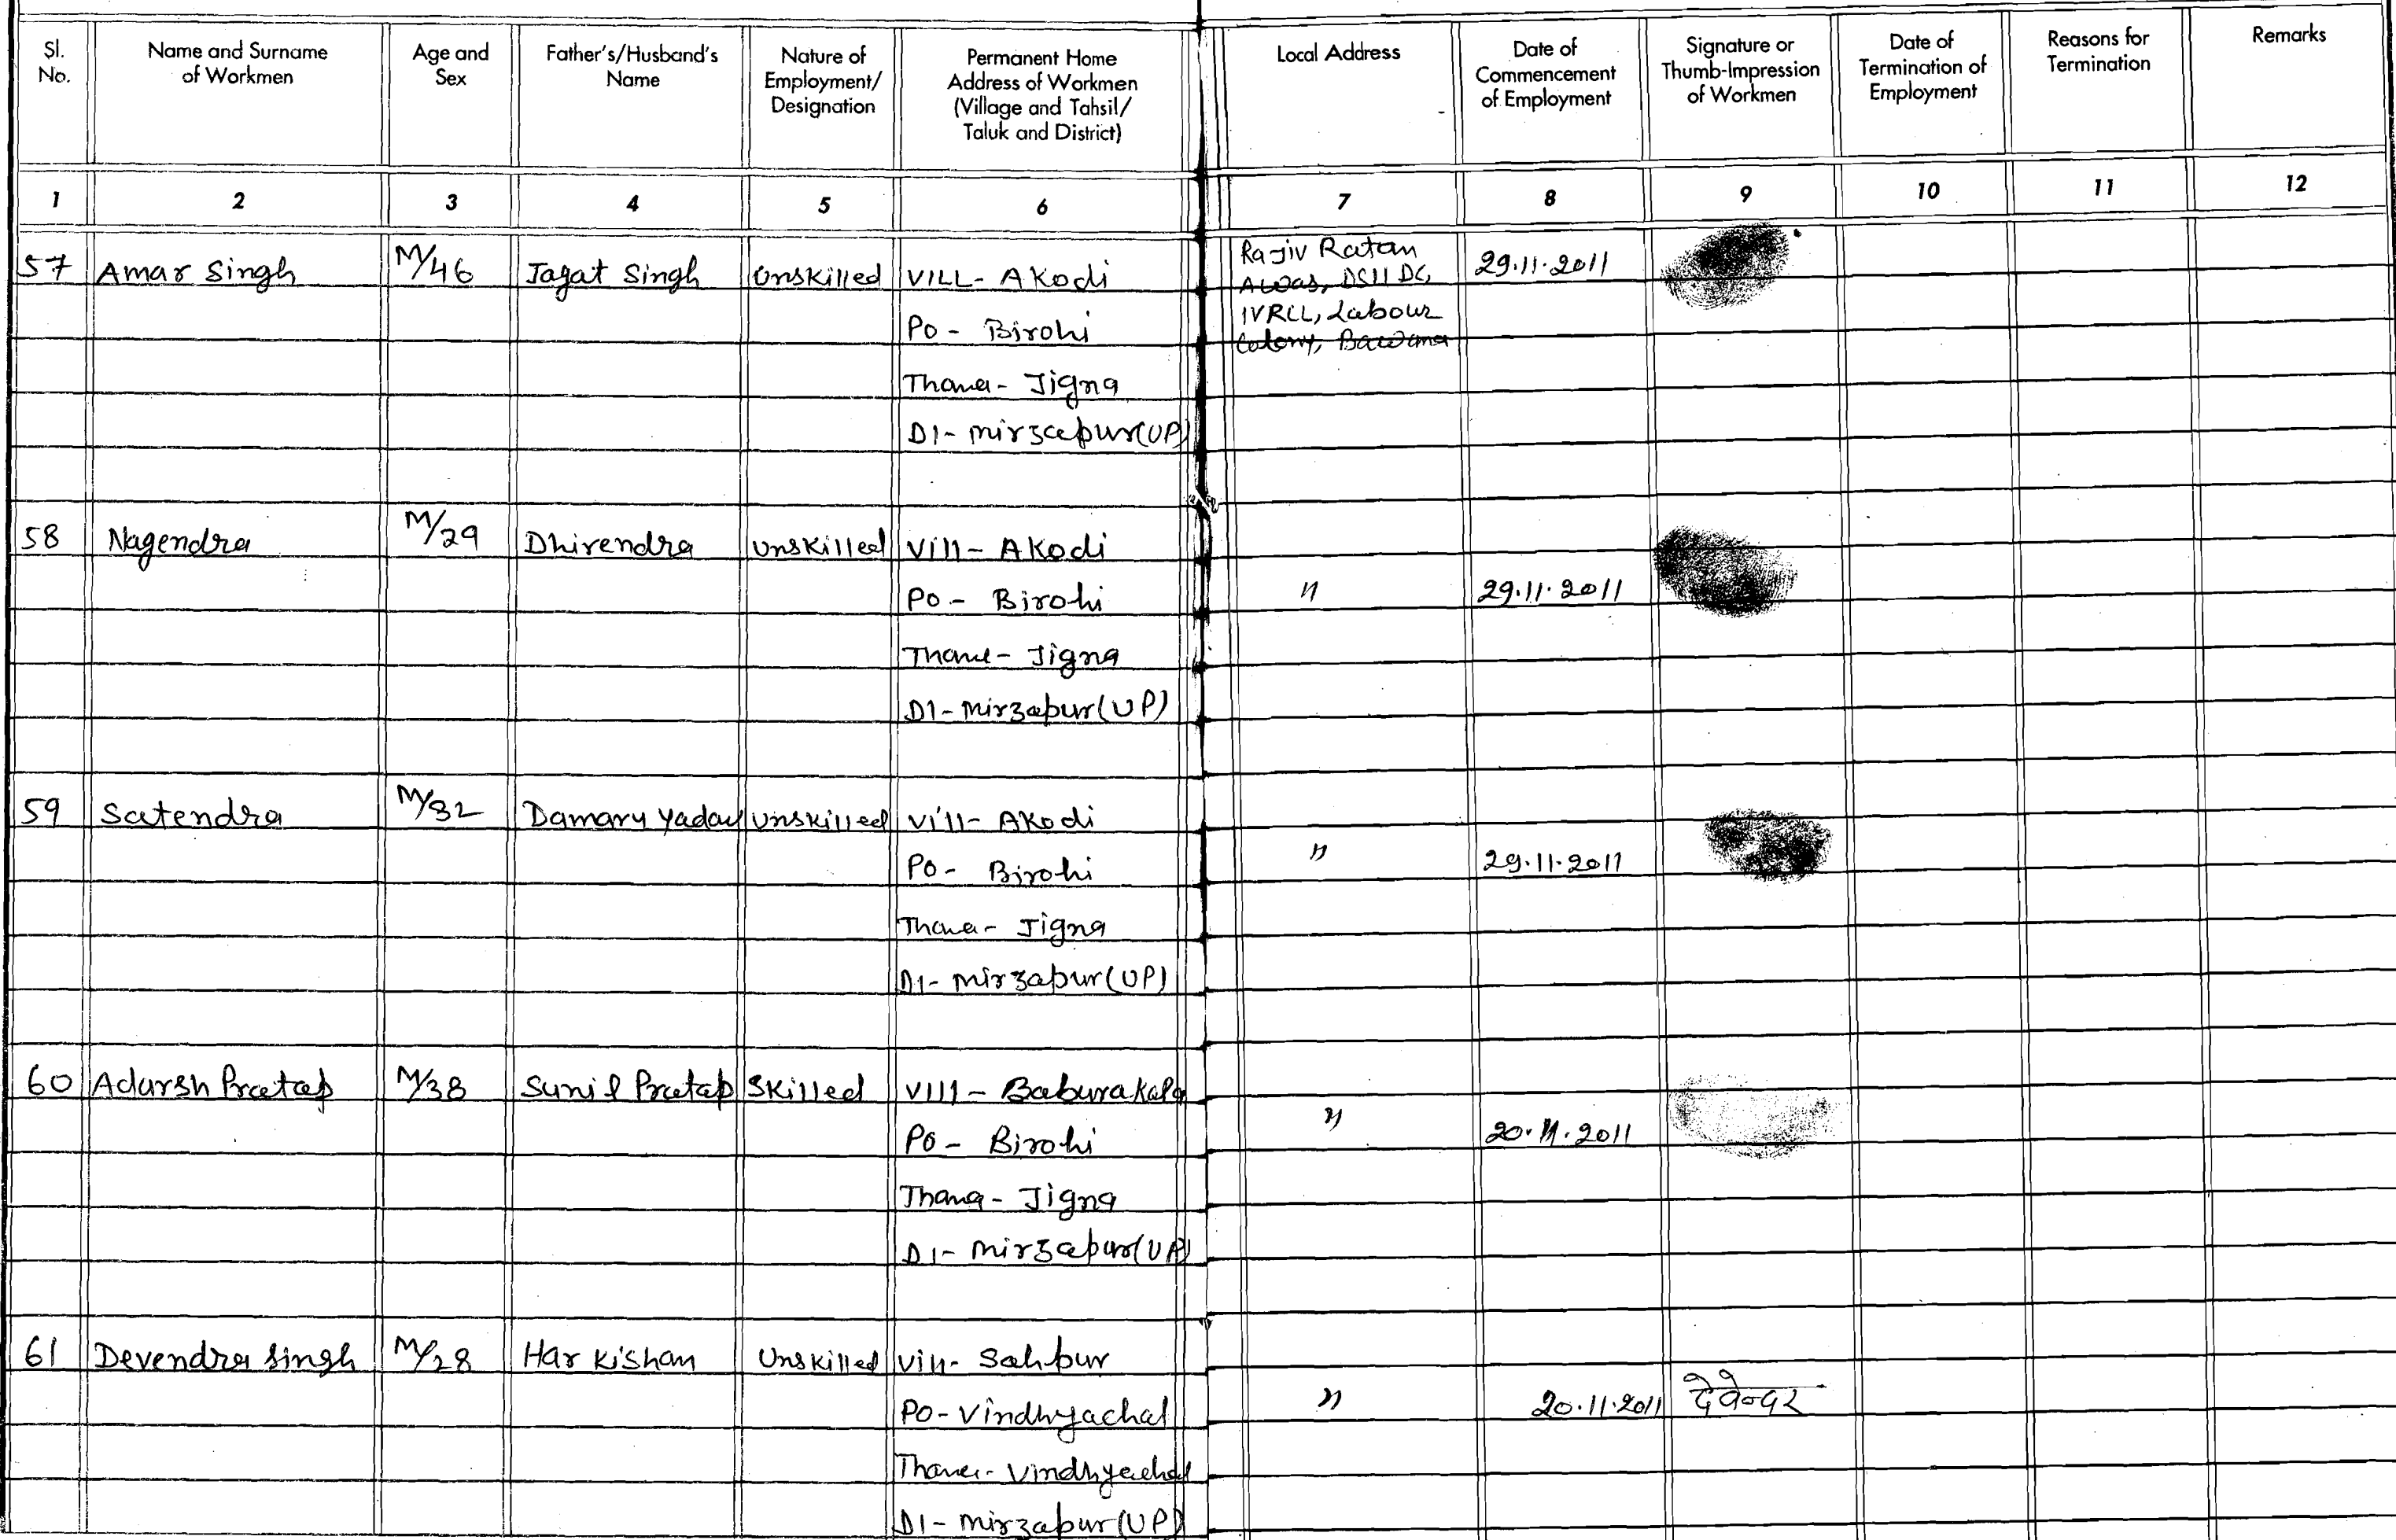 Sl. No. Name and Surname of Workmen Age and Sex Father's/Husband's Name Nature of Employment/ Designation Permanent Home Address of Workmen (Village and Tahsil/ Taluk and District) Local Address Date of Commencement of Employment Signature or Thumb-Impression of Workmen Date of Termination of Employment Reasons for Termination Remarks
1 2 3 4 5 6 7 8 9 10 11 12
57 Amar Singh M/46 Jagat Singh Unskilled VILL- Akodi Rajiv Ratan Awas, DSIIDC, 29.11.2011
Po - Birohi IVRCL, Labour Colony, Bawana
Thana- Jigna
DI- Mirzapur(UP)
58 Nagendra M/29 Dhirendra Unskilled Vill- Akodi
Po - Birohi 〃 29.11.2011
Thana- Jigna
DI- Mirzapur(UP)
59 Satendra M/32 Damary Yadav Unskilled Vill- Akodi
Po - Birohi 〃 29.11.2011
Thana- Jigna
DI- Mirzapur(UP)
60 Adarsh Pratap M/38 Sunil Pratap Skilled Vill - Baburakala
Po - Birohi 〃 20.11.2011
Thana- Jigna
DI- Mirzapur(UP)
61 Devendra Singh M/28 Har Kishan Unskilled Vill- Sahpur
Po- Vindhyachal 〃 20.11.2011 देवेन्दर
Thana- Vindhyachal
DI- Mirzapur(UP)